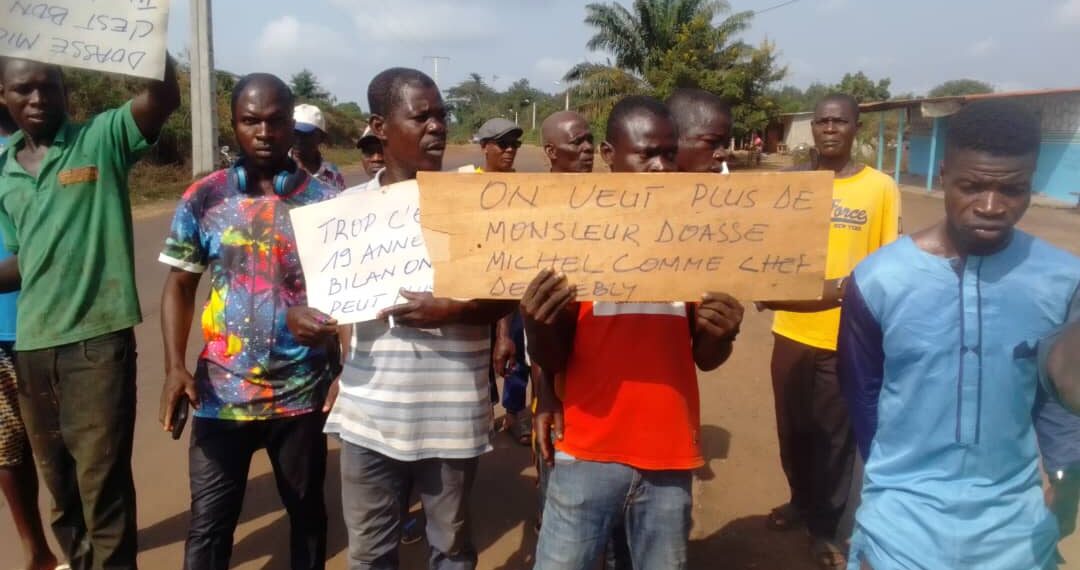 DOASSE MIC
C'EST BON
TROP C'E
19 ANNE
BILAN ON
PEUT PLUS
ON VEUT PLUS DE
MONSIEUR DOASSE
MICHEL COMME CHEF
Force
NEW YORK